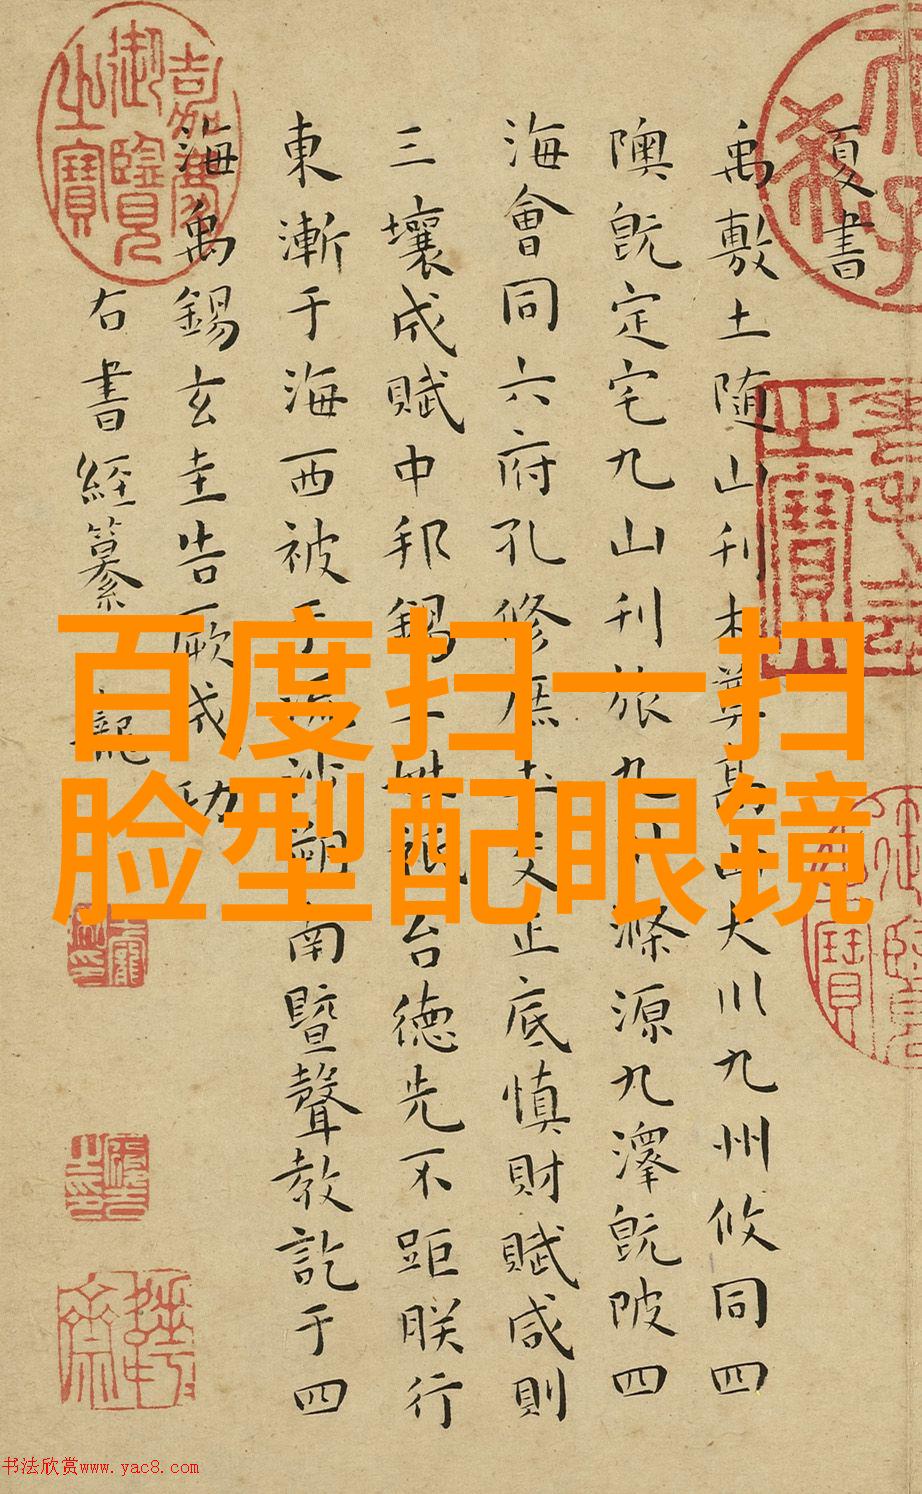 夏書
禹敷土随山刊木奠高山大川九州攸同四
隩既定宅九山刊旅九川滌源九澤既陂四
海會同六府孔修庶土交正底慎財賦咸則
三壤成賦中邦錫土姓祗台德先不距朕行
東漸于海西被于流沙朔南暨聲教訖于四
海禹錫玄圭告厥成功
右書經纂
百度扫一扫
脸型配眼镜
嘉慶御覽之寶
书法欣赏www.yac8.com